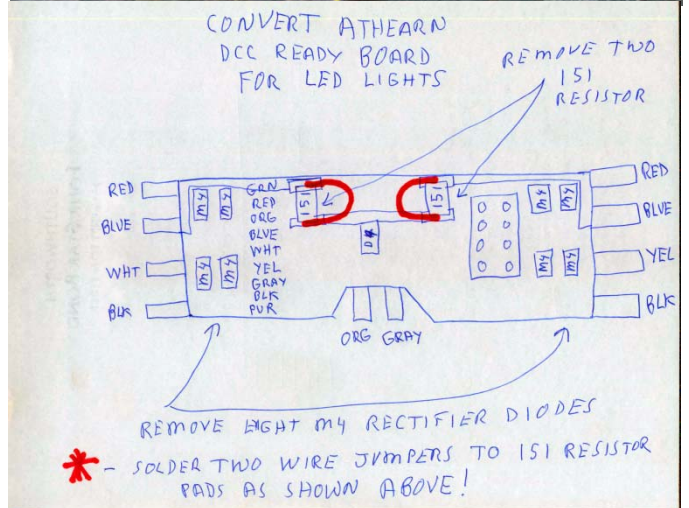 CONVERT ATHEARN
DCC READY BOARD
FOR LED LIGHTS
REMOVE TWO
151
RESISTOR
RED
BLUE
WHT
BLK
GRN
RED
ORG
BLUE
WHT
YEL
GRAY
BLK
PUR
151
151
M4
M4
M4
M4
M4
M4
M4
M4
RED
BLUE
YEL
BLK
ORG GRAY
REMOVE EIGHT M4 RECTIFIER DIODES
* - SOLDER TWO WIRE JUMPERS TO 151 RESISTOR
PADS AS SHOWN ABOVE!